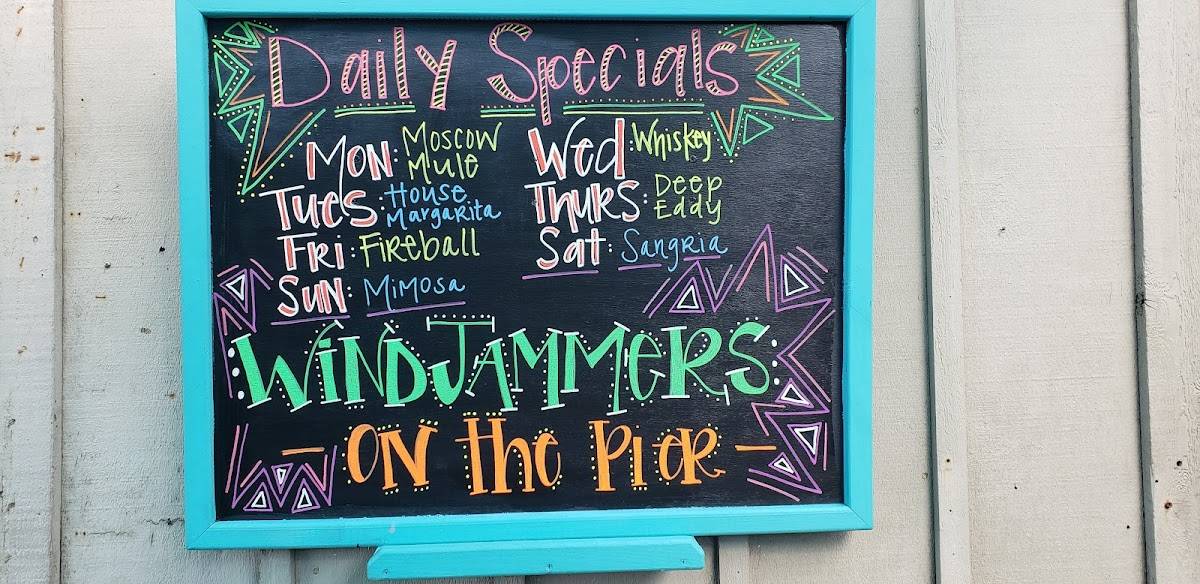 Daily Specials
Mon: Moscow Mule
Wed: Whiskey
Tues: House Margarita
Thurs: Deep Eddy
Fri: Fireball
Sat: Sangria
Sun: Mimosa
WINDJAMMERS
- ON the PieR -